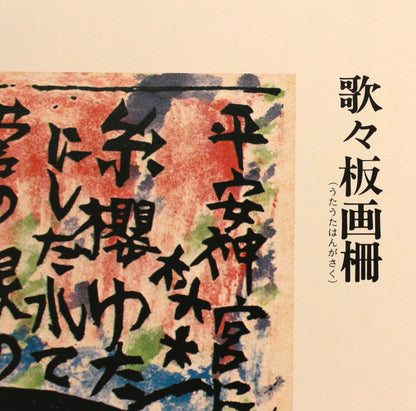 歌々板画柵
（うたうたはんがさく）
平安神宮に
糸櫻ゆた
にしたれて
営の